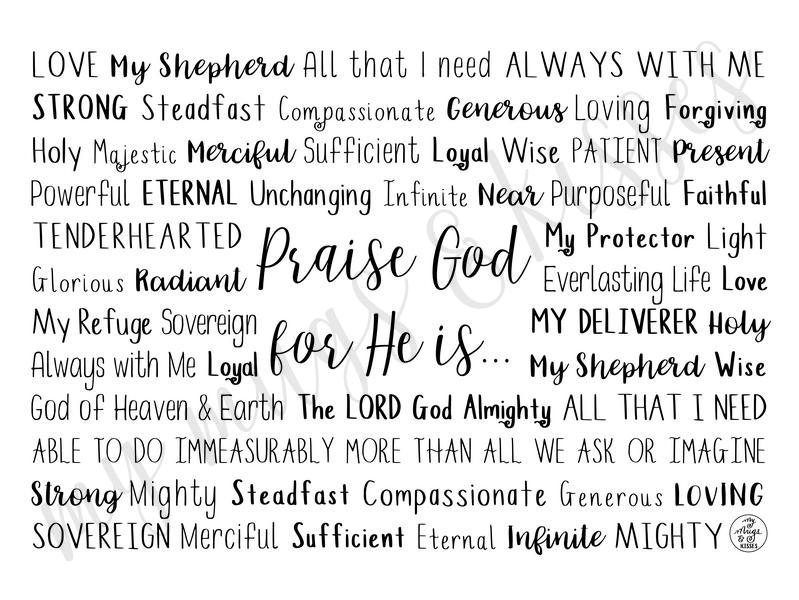 LOVE My Shepherd All that I need ALWAYS WITH ME
STRONG Steadfast Compassionate Generous Loving Forgiving
Holy Majestic Merciful Sufficient Loyal Wise PATIENT Present
Powerful ETERNAL Unchanging Infinite Near Purposeful Faithful
TENDERHEARTED Praise God My Protector Light
Glorious Radiant Everlasting Life Love
My Refuge Sovereign for He is... MY DELIVERER Holy
Always with Me Loyal My Shepherd Wise
God of Heaven & Earth The LORD God Almighty ALL THAT I NEED
ABLE TO DO IMMEASURABLY MORE THAN ALL WE ASK OR IMAGINE
Strong Mighty Steadfast Compassionate Generous LOVING
SOVEREIGN Merciful Sufficient Eternal Infinite MIGHTY
my Mugs & KISSES
my mugs & kisses